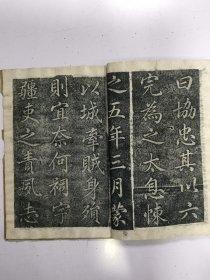 曰協忠其以六
完為之太息悚
之五年三月蒙
以城牽賊身殞
則宜奈何祠宇
疆吏之責夙志